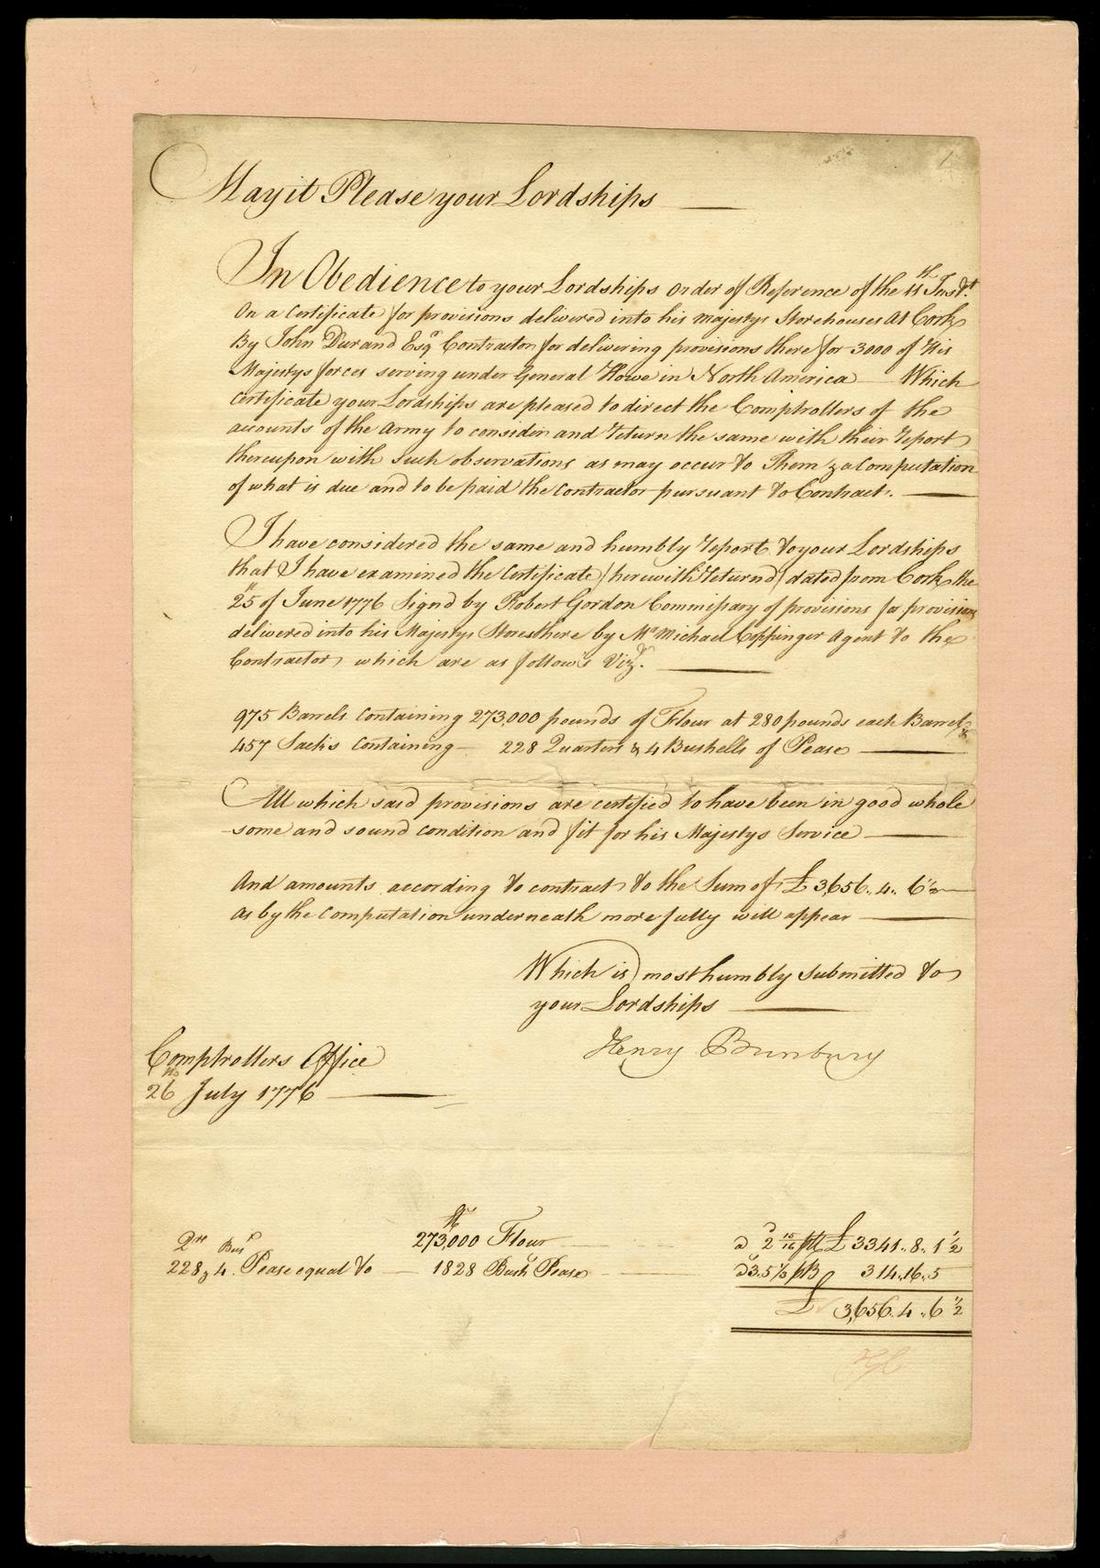 May it Please your Lordships
In Obedience to your Lordships order of Reference of the 11th Inst.t
On a Certificate for provisions delivered into his majestys Storehouses at Cork
By John Durand Esqr Contractor for delivering provisions there for 3000 of His
Majestys forces serving under General Howe in North America Which
Certificate your Lordships are pleased to direct the Comptrollers of the
accounts of the Army to consider and return the same with their report
thereupon with such observations as may occur to Them & a Computation
of what is due and to be paid the Contractor pursuant to Contract.
I have considered the same and humbly report to your Lordships
that I have examined the Certificate (herewith returnd) dated from Cork the
25th of June 1776 Signd by Robert Gordon Commissary of provisions for provisions
delivered into his Majestys Stores there by Mr Michael Eppinger Agent to the
Contractor which are as follows Vizt.
975 Barrels Containing 273,000 pounds of Flour at 280 pounds each Barrel &
457 Sacks Containing 228 Quarters & 4 Bushells of Pease
All which said provisions are certified to have been in good whole
some and sound condition and fit for his Majestys Service
And amounts according to contract to the Sum of £3,656.. 4.. 6 1/2
As by the Computation underneath more fully will appear
Which is most humbly submitted to
your Lordships
Henry Bunbury
Comptrollers Office
26th July 1776
273,000 Flour a 2 15/16 £3341.. 8.. 1 1/2
Qrs Bus
228, 4 Pease equal to 1828 Bush Pease 314.. 16.. 5
£ 3,656. 4.. 6 1/2